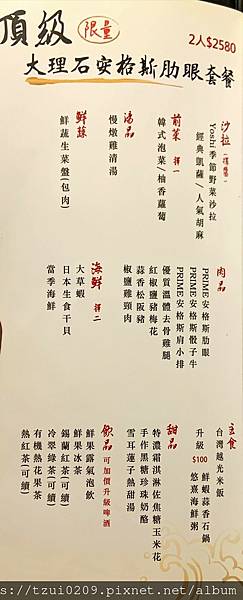 頂級 限量
2人$2580
大理石安格斯肋眼套餐
沙拉 (擇一)
Yoshi季節野菜沙拉
經典凱薩/人氣胡麻
前菜 擇一
韓式泡菜/柚香蘿蔔
湯品
慢燉雞清湯
鮮蔬
鮮蔬生菜盤(包肉)
肉品
PRIME安格斯肋眼
PRIME安格斯骰子牛
PRIME安格斯肩小排
優質溫體去骨雞腿
紅椒鹽豬梅花
蒜香松阪豬
椒鹽雞頸肉
海鮮 擇二
大草蝦
日本生食干貝
當季海鮮
主食
台灣越光米飯
升級 $100
鮮蝦蒜香石鍋
悠熹海鮮粥
甜品
特濃霜淇淋佐焦糖玉米花
手作黑糖珍珠奶酪
雪耳蓮子熱甜湯
飲品 可加價升級啤酒
鮮果露氣泡飲
鮮果冰茶
錫蘭紅茶(可續)
冷翠綠茶(可續)
有機熱花果茶
熱紅茶(可續)
s://tzui0209.pixnet.net/album